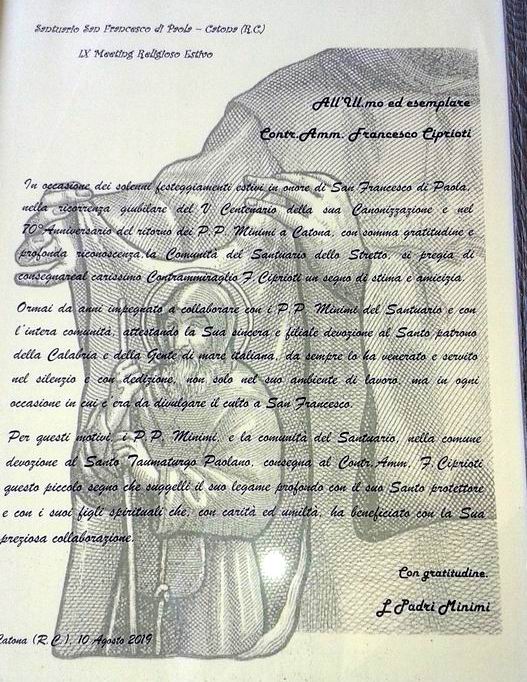 Santuario San Francesco di Paola – Catona (R.C.)
IX Meeting Religioso Estivo
All'Ill.mo ed esemplare
Contr.Amm. Francesco Ciprioti
In occasione dei solenni festeggiamenti estivi in onore di San Francesco di Paola,
nella ricorrenza giubilare del V Centenario della sua Canonizzazione e nel
70°Anniversario del ritorno dei P.P. Minimi a Catona, con somma gratitudine e
profonda riconoscenza,la Comunità del Santuario dello Stretto, si pregia di
consegnareal carissimo Contrammiraglio F.Ciprioti un segno di stima e amicizia.
Ormai da anni impegnato a collaborare con i P.P. Minimi del Santuario e con
l'intera comunità, attestando la Sua sincera e filiale devozione al Santo patrono
della Calabria e della Gente di mare italiana, da sempre lo ha venerato e servito
nel silenzio e con dedizione, non solo nel suo ambiente di lavoro, ma in ogni
occasione in cui c'era da divulgare il culto a San Francesco.
Per questi motivi, i P.P. Minimi, e la comunità del Santuario, nella comune
devozione al Santo Taumaturgo Paolano, consegna al Contr.Amm. F.Ciprioti
questo piccolo segno che suggelli il suo legame profondo con il suo Santo protettore
e con i suoi figli spirituali che, con carità ed umiltà, ha beneficiato con la Sua
preziosa collaborazione.
Con gratitudine.
I Padri Minimi
Catona (R.C.), 10 Agosto 2019